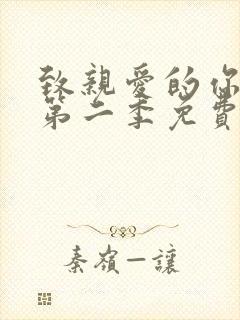 致親愛的你
第二季免費
秦嶺一讓